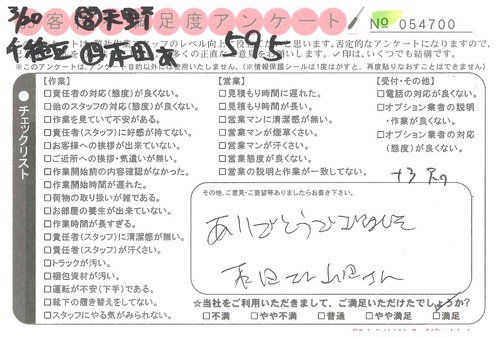 お客様満足度アンケート
3/20 営 天野
No 054700
千種区 作 本田
595
※このアンケートは、アンケート目的以外には使用いたしません。(※情報保護シールは1度はがすと、再度貼りなおすことはできません)
チェックリスト
【作業】
□責任者の対応(態度)が良くない。
□他のスタッフの対応(態度)が良くない。
□作業を見ていて不安がある。
□責任者(スタッフ)に好感が持てない。
□お客様への挨拶が出来ていない。
□ご近所への挨拶・気遣いが無い。
□作業開始前の内容確認がなかった。
□作業開始時間が遅れた。
□荷物の取り扱いが雑である。
□お部屋の養生が出来ていない。
□作業時間が長すぎる。
□責任者(スタッフ)に清潔感が無い。
□責任者(スタッフ)が汗くさい。
□トラックが汚い。
□梱包資材が汚い。
□運転が不安(下手)である。
□靴下の履き替えをしてない。
□スタッフにやる気がみられない。
【営業】
□見積もり時間に遅れた。
□見積もり時間が長い。
□営業マンに清潔感が無い。
□営業マンが煙草くさい。
□営業マンが汗くさい。
□営業態度が良くない。
□営業の説明と作業が一致してない。
【受付・その他】
□電話の対応が良くない。
□オプション業者の説明
・作業が良くない。
□オプション業者の対応
(態度)が良くない。
その他、ご意見・ご要望等ありましたらお書き下さい。
ありがとうございました
☆当社をご利用いただきまして、ご満足いただけたでしょうか?
□不満 □やや不満 □普通 □やや満足 □満足